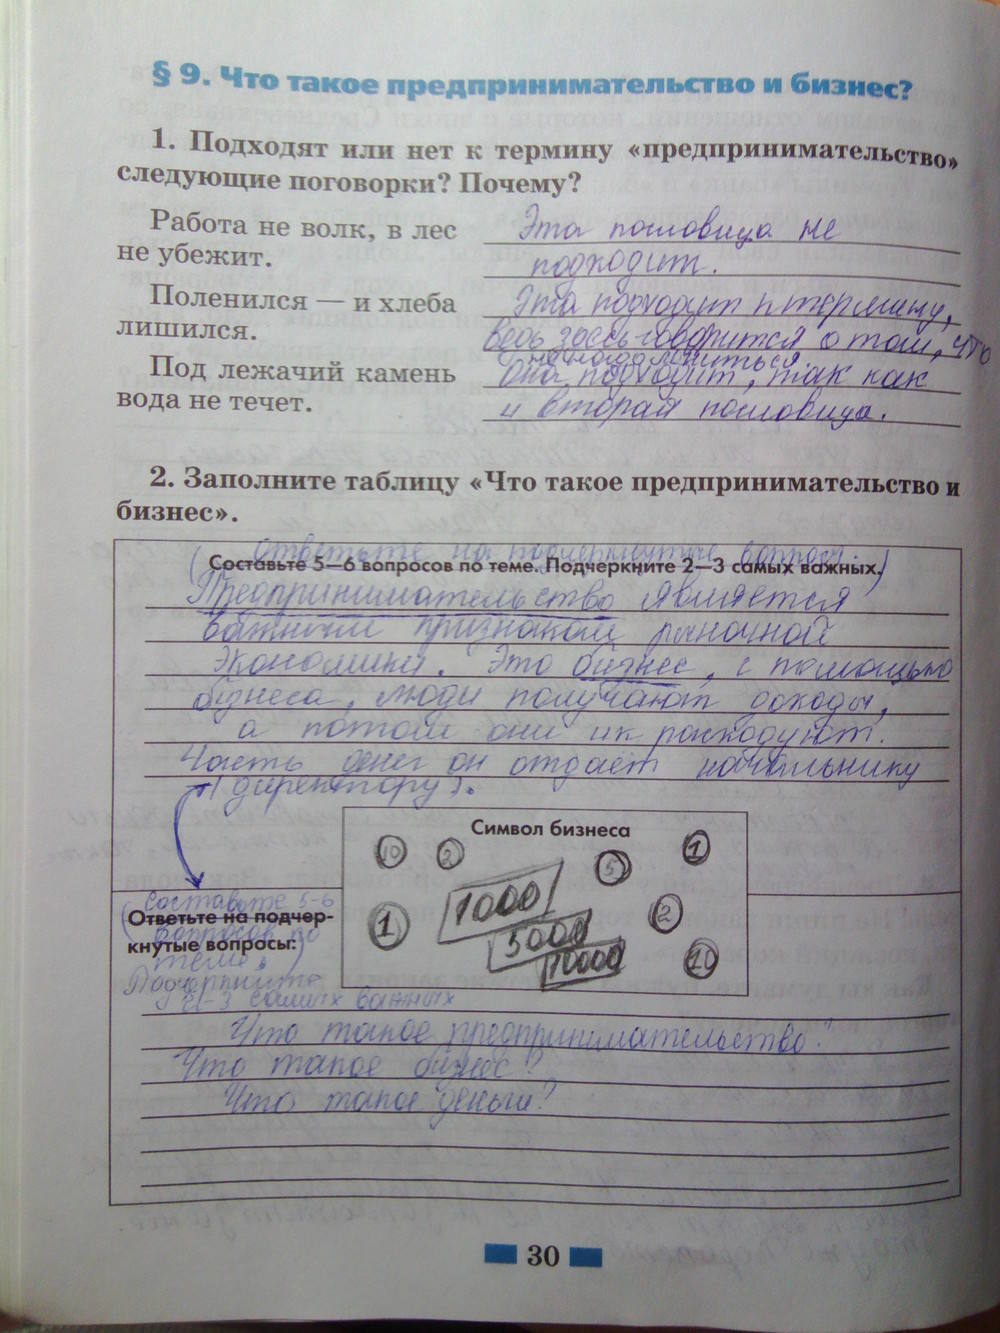 § 9. Что такое предпринимательство и бизнес?
1. Подходят или нет к термину «предпринимательство»
следующие поговорки? Почему?
Работа не волк, в лес
не убежит.
Эта пословица не
подходит.
Поленился — и хлеба
лишился.
Эта подходит к термину,
ведь здесь говорится о том, что
надо
Под лежачий камень
вода не течет.
она подходит, так как
и вторая пословица.
2. Заполните таблицу «Что такое предпринимательство и
бизнес».
(ответьте на подчеркнутые вопросы.)
Составьте 5—6 вопросов по теме. Подчеркните 2—3 самых важных.
Предпринимательство является
важным признаком рыночной
экономики. Это бизнес, с помощью
бизнеса, люди получают доходы,
а потом они их расходуют.
Часть денег он отдаёт начальнику
(директору).
Символ бизнеса
10 2 5 1
1 1000 5000 10000 2 10
(составьте 5-6
Ответьте на подчер-
вопросов по
кнутые вопросы:
теме.)
Подчеркните
2-3 самых важных
Что такое предпринимательство?
Что такое бизнес?
Что такое деньги?
30